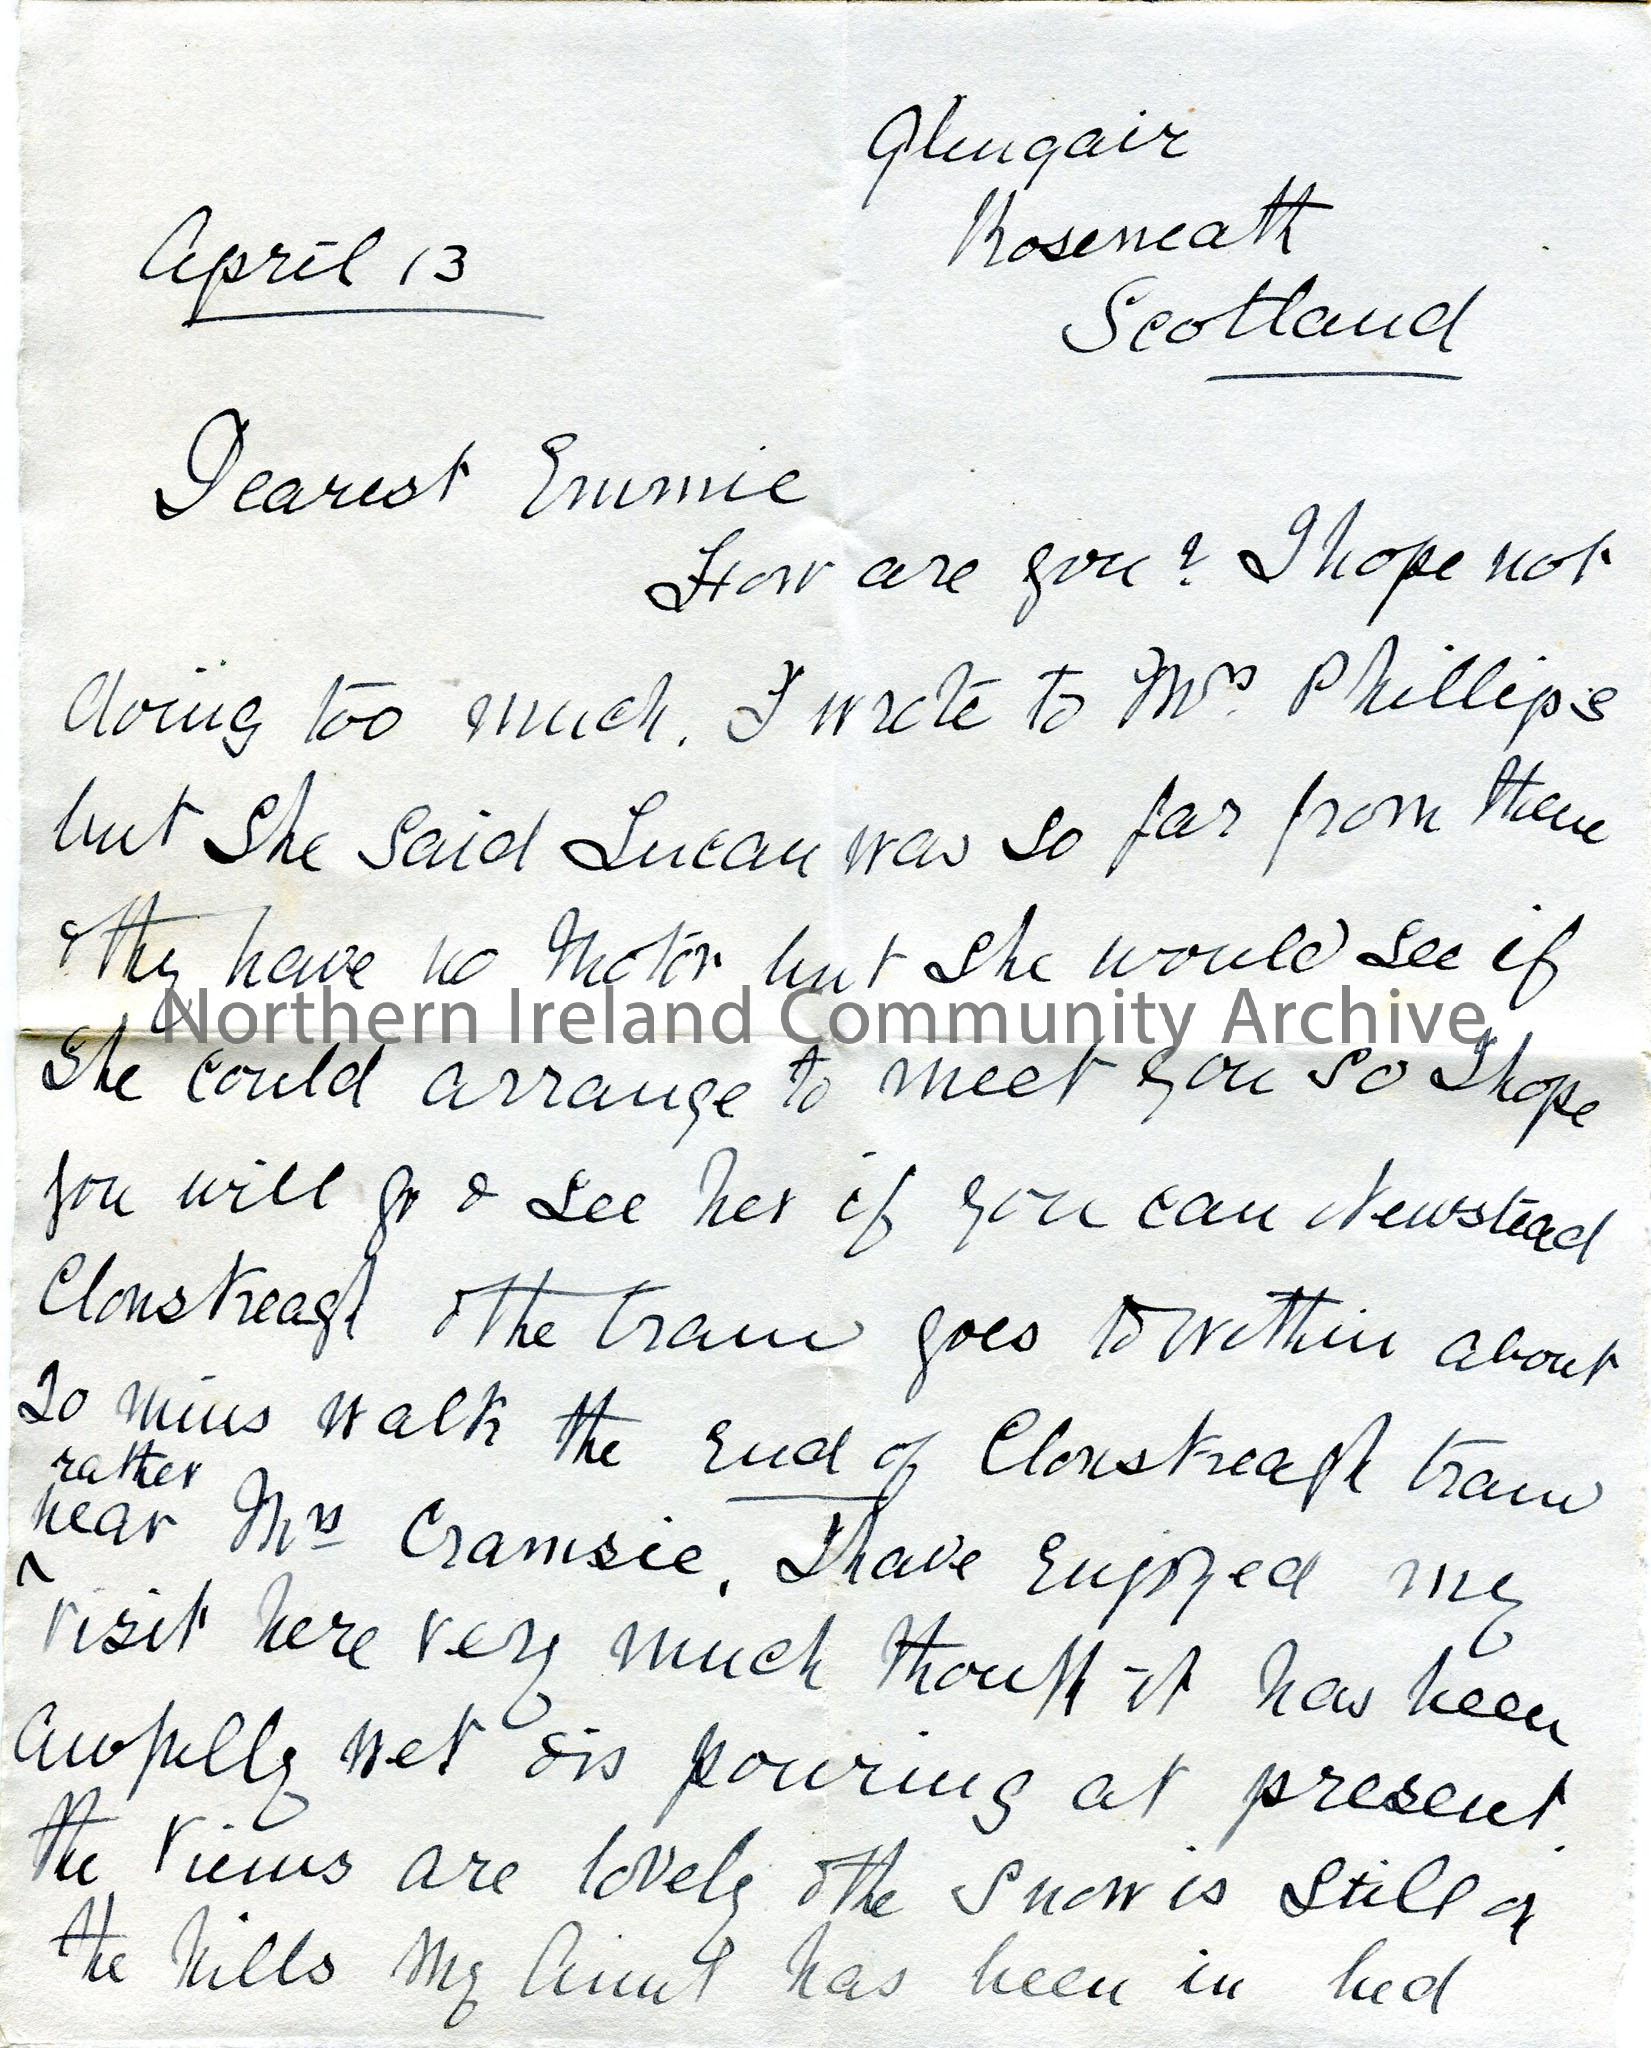 Glengair
Roseneath
April 13
Scotland
Dearest Emmie
How are you? I hope not
doing too much. I wrote to Mrs. Phillips
but She Said Lucan was so far from them
& they have no Motor but she would see if
Northern Ireland Community Archive
She could arrange to meet you so I hope
you will go & see her if you can Newstead
Clonskeagh & the tram goes to within about
20 mins walk the End of Clonskeagh tram
rather
near Mrs Cramsie. I have Enjoyed my
visit here very much though it has been
awfully wet & is pouring at present.
the views are lovely & the Snow is still on
the hills My Aunt has been in bed